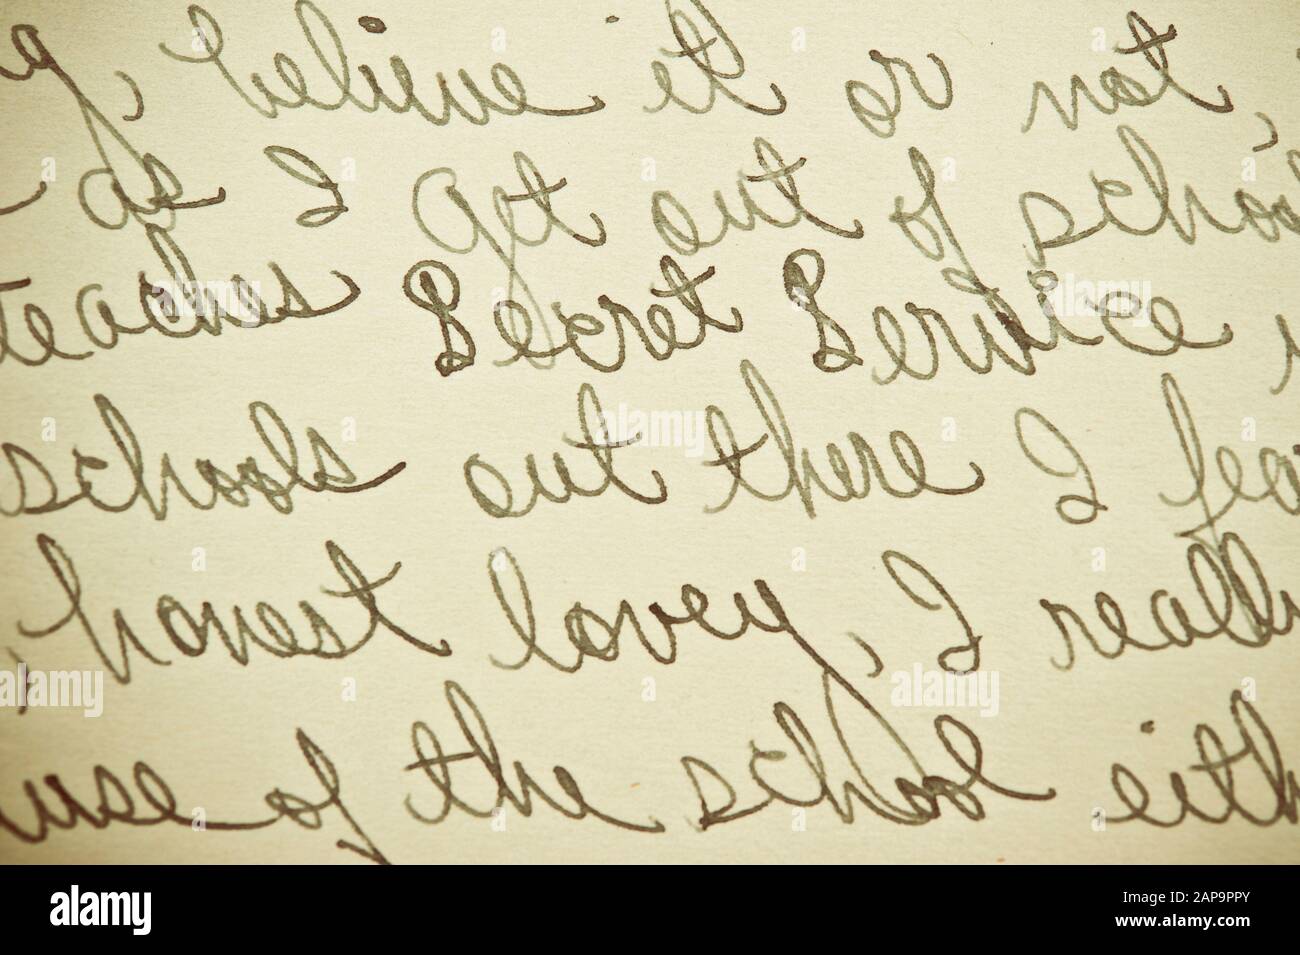 g, believe it or not,
as I get out of school
teaches Secret Service
schools out there I
honest lovey, I really
use of the school
alamy
Image ID: 2AP9PPY
www.alamy.com